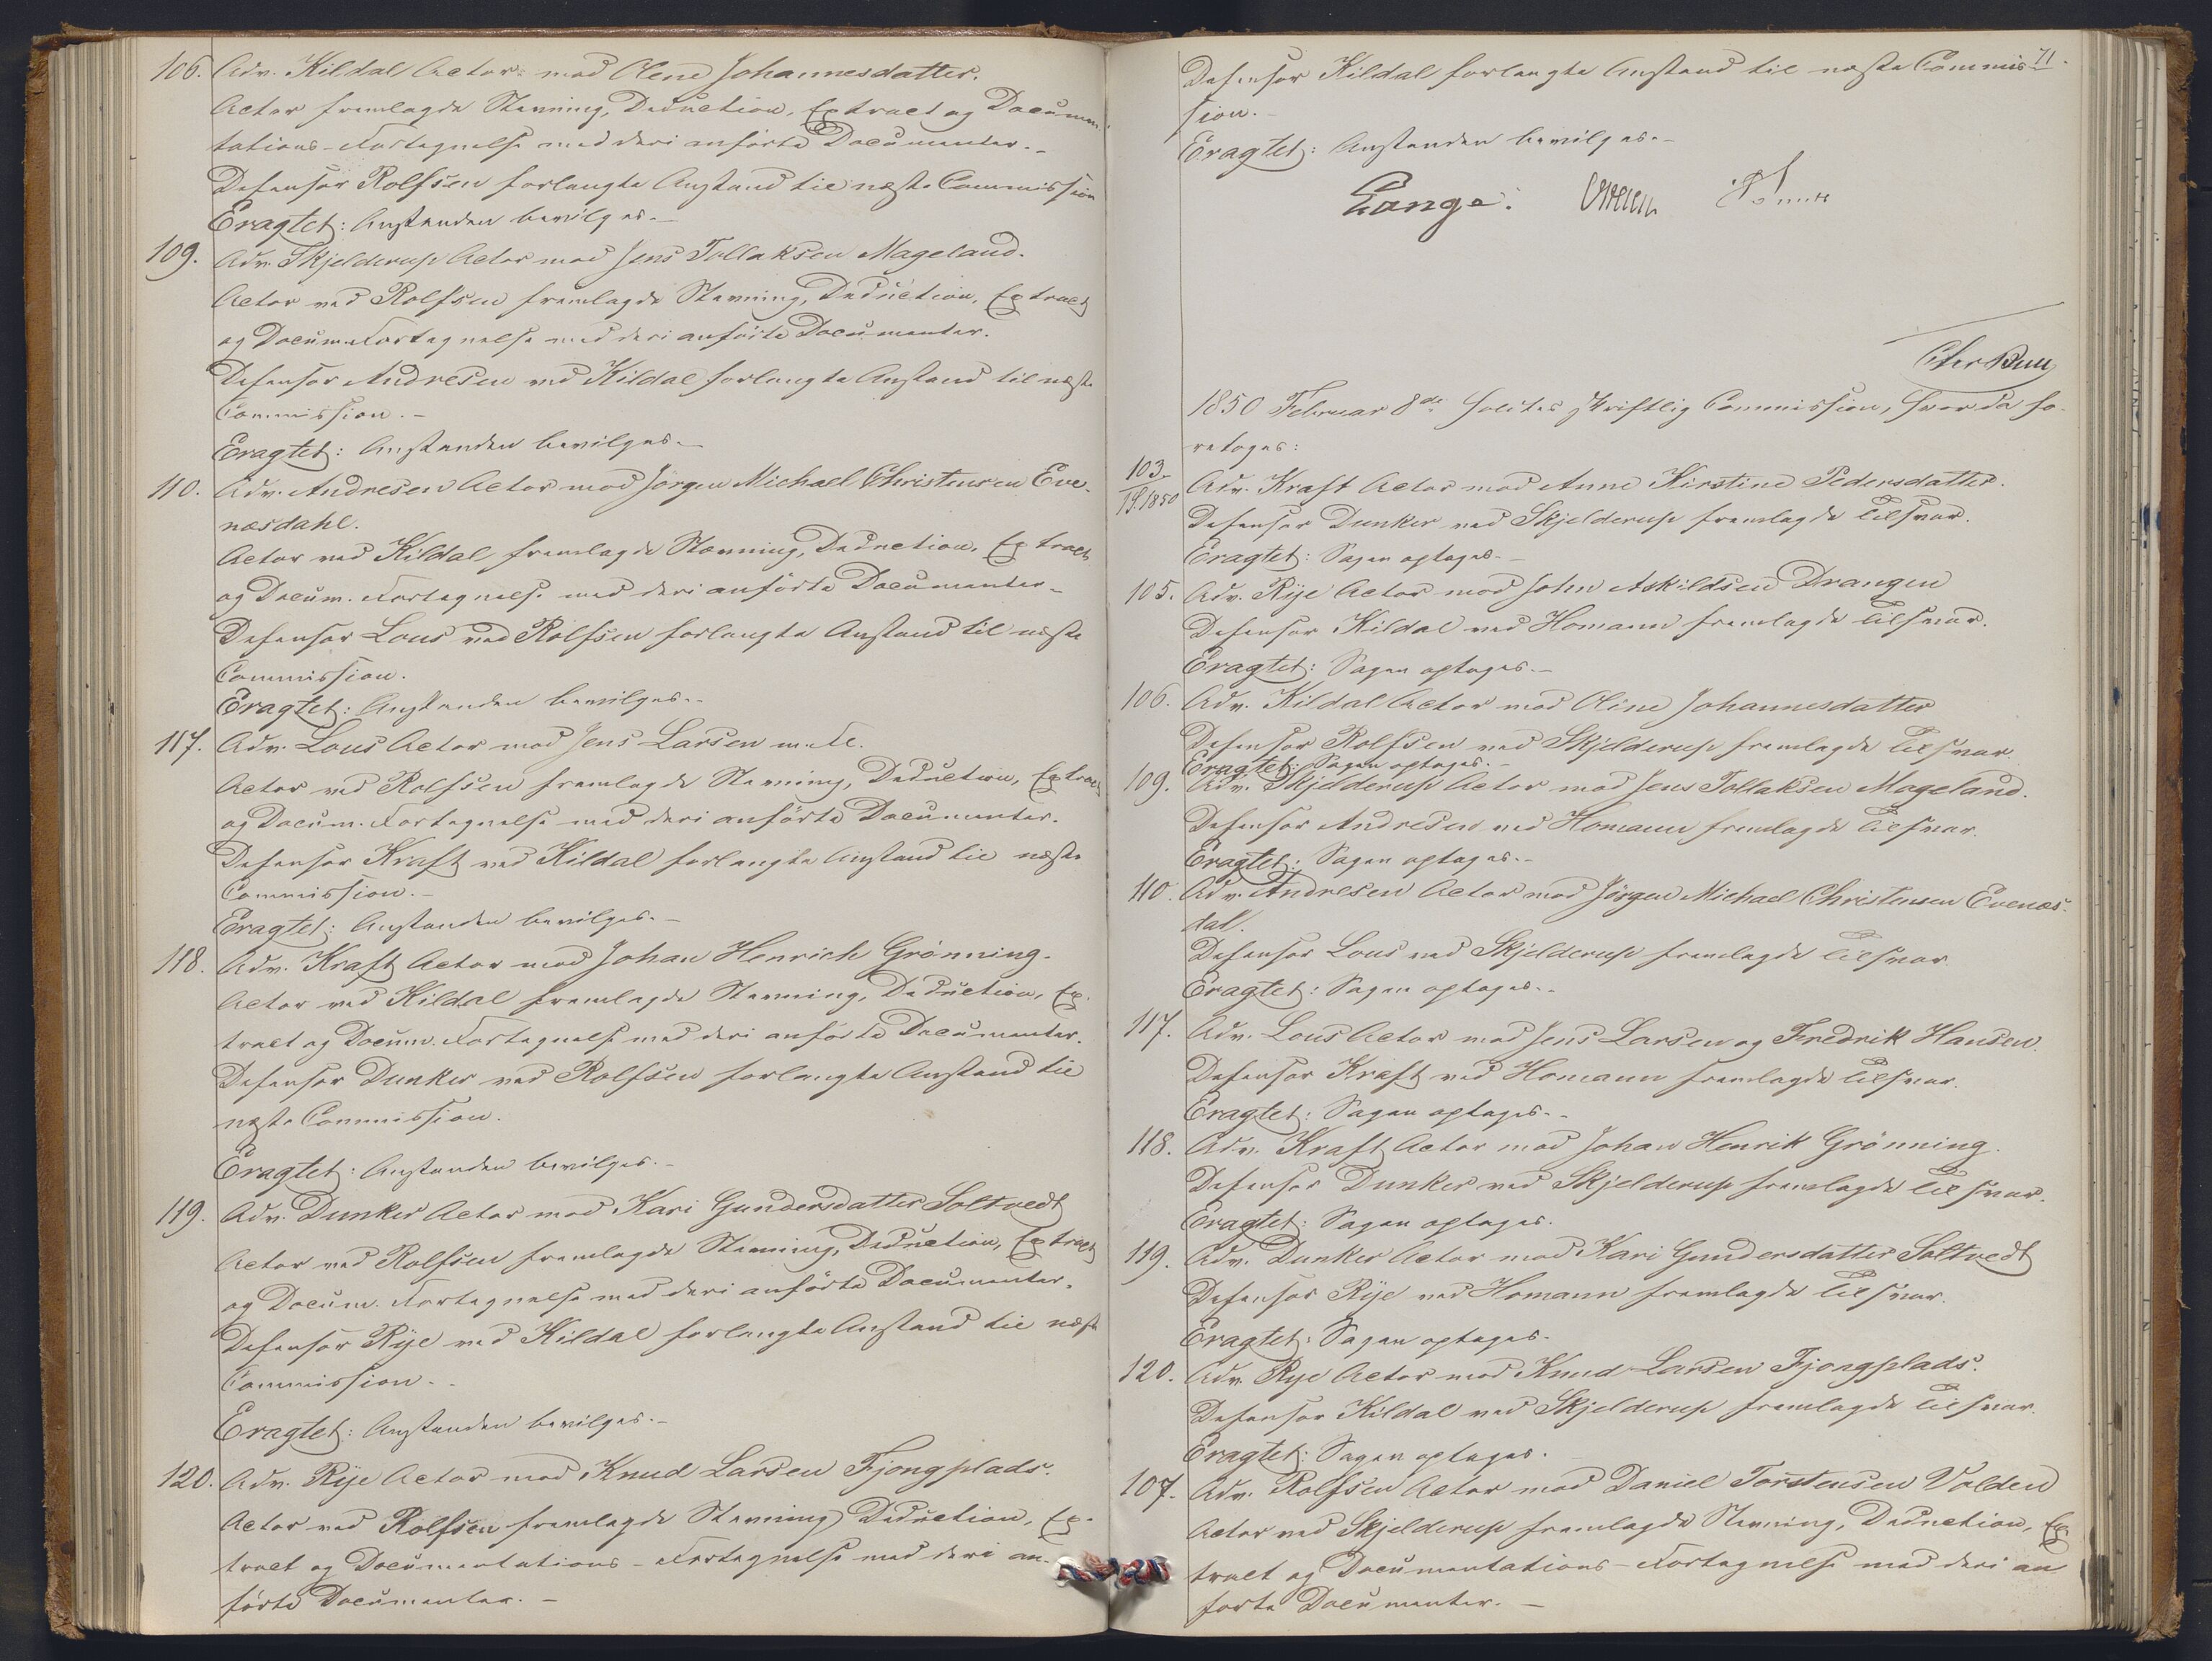 106. Adv. Kildal Actor mod Olene Johannesdatter.
Actor fremlagde Stevning, Deduction, Extract og Documen-
tations-Fortegnelse med deri anførte Documenter.-
Defensor Rolfsen forlangte Anstand til næste Commission
Eragtet: Anstanden bevilges.-
109. Adv. Skjelderup Actor mod Jens Tollaksen Mageland.
Actor ved Rolfsen fremlagde Stevning, Deduction, Extract
og Docum. Fortegnelse med deri anførte Documenter.
Defensor Andresen ved Kildal forlangte Anstand til næste
Commission.-
Eragtet: Anstanden bevilges.-
110. Adv. Andresen Actor mod Jørgen Michael Christensen Eve-
næsdahl.
Actor ved Kildal fremlagde Stevning, Deduction, Extract
og Docum. Fortegnelse med deri anførte Documenter-
Defensor Lous ved Rolfsen forlangte Anstand til næste
Commission.
Eragtet: Anstanden bevilges.-
117. Adv. Lous Actor mod Jens Larsen m. Fl.
Actor ved Rolfsen fremlagde Stevning, Deduction, Extract
og Docum. Fortegnelse med deri anførte Documenter.
Defensor Kraft ved Kildal forlangte Anstand til næste
Commission.-
Eragtet: Anstanden bevilges.-
118. Adv. Kraft Actor mod Johan Henrich Grönning.
Actor ved Kildal fremlagde Stevning, Deduction, Ex-
tract og Docum. Fortegnelse med deri anførte Documenter.
Defensor Dunker ved Rolfsen forlangte Anstand til
næste Commission.
Eragtet: Anstanden bevilges.-
119. Adv. Dunker Actor mod Kari Gundersdatter Soltvedt
Actor ved Rolfsen fremlagde Stevning, Deduction, Extract
og Docum. Fortegnelse med deri anførte Documenter.
Defensor Rije ved Kildal forlangte Anstand til næste
Commission.-
Eragtet: Anstanden bevilges.-
120. Adv. Rije Actor mod Knud Larsen Fjongplads.
Actor ved Rolfsen fremlagde Stevning, Deduction, Ex-
tract og Documentations-Fortegnelse med deri an-
førte Documenter.-
71.
Defensor Kildal forlangte Anstand til næste Commis-
sion.-
Eragtet: Anstanden bevilges.-
Lange.
1850 Februar 8de holdtes skriftlig Commission, hvor da fo-
retoges:
103/18 1850 Adv. Kraft Actor mod Anne Kirstine Pedersdatter.
Defensor Dunker ved Skjelderup fremlagde Tilsvar.
Eragtet: Sagen optages.-
105. Adv. Rije Actor mod John Askildsen Drangen
Defensor Kildal ved Homann fremlagde Tilsvar.
Eragtet: Sagen optages.-
106. Adv. Kildal Actor mod Oline Johannesdatter
Defensor Rolfsen ved Skjelderup fremlagde Tilsvar.
Eragtet: Sagen optages.-
109. Adv. Skjelderup Actor mod Jens Tollaksen Mageland.
Defensor Andresen ved Homann fremlagde Tilsvar.
Eragtet: Sagen optages.-
110. Adv. Andresen Actor mod Jørgen Michael Christensen Evenæs-
dal.
Defensor Lous ved Skjelderup fremlagde Tilsvar.
Eragtet: Sagen optages.-
117. Adv. Lous Actor mod Jens Larsen og Fredrik Hansen.
Defensor Kraft ved Homann fremlagde Tilsvar.
Eragtet: Sagen optages.-
118. Adv. Kraft Actor mod Johan Henrik Grönning.
Defensor Dunker ved Skjelderup fremlagde Tilsvar.
Eragtet: Sagen optages.
119. Adv. Dunker Actor mod Kari Gundersdatter Soltvedt
Defensor Rije ved Homann fremlagde Tilsvar.
Eragtet: Sagen optages.
120. Adv. Rye Actor mod Knud Larsen Fjongplads.
Defensor Kildal ved Skjelderup fremlagde Tilsvar.
Eragtet: Sagen optages.
107. Adv. Rolfsen Actor mod Daniel Torstensen Valden
Actor ved Skjelderup fremlagde Stevning, Deduction, Ex-
tract og Documentations-Fortegnelse med deri an
førte Documenter.-